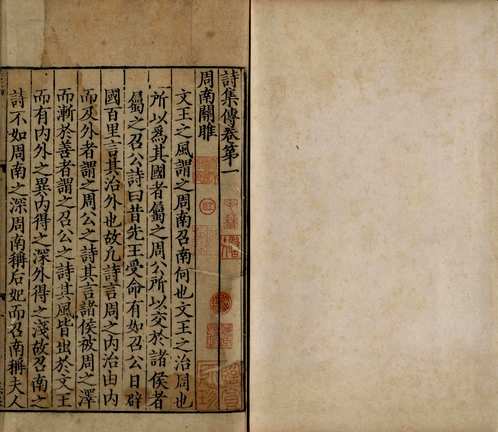 詩集傳卷第一
周南關雎
文王之風謂之周南召南何也文王之治周也
所以為其國者屬之周公所以交於諸侯者
屬之召公詩曰昔先王受命有如召公日辟
國百里言其治外也故凡詩言周之内治由内
而及外者謂之周公之詩其言諸侯被周之澤
而漸於善者謂之召公之詩其風皆出於文王
而有内外之異内得之深外得之淺故召南之
詩不如周南之深周南稱后妃而召南稱夫人